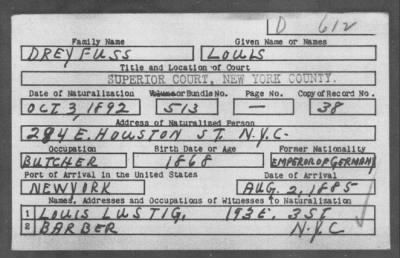 D 612
Family Name Given Name or Names
DREYFUSS LOUIS
Title and Location of Court
SUPERIOR COURT, NEW YORK COUNTY.
Date of Naturalization Volume or Bundle No. Page No. Copy of Record No.
OCT 3, 1892 513 — 38
Address of Naturalized Person
284 E. HOUSTON ST. N.Y.C.
Occupation Birth Date or Age Former Nationality
BUTCHER 1868 EMPEROR OF GERMANY
Port of Arrival in the United States Date of Arrival
NEW YORK AUG. 2, 1885
Names, Addresses and Occupations of Witnesses to Naturalization
1 LOUIS LUSTIG, 193 E. 3 ST
2 BARBER N.Y.C